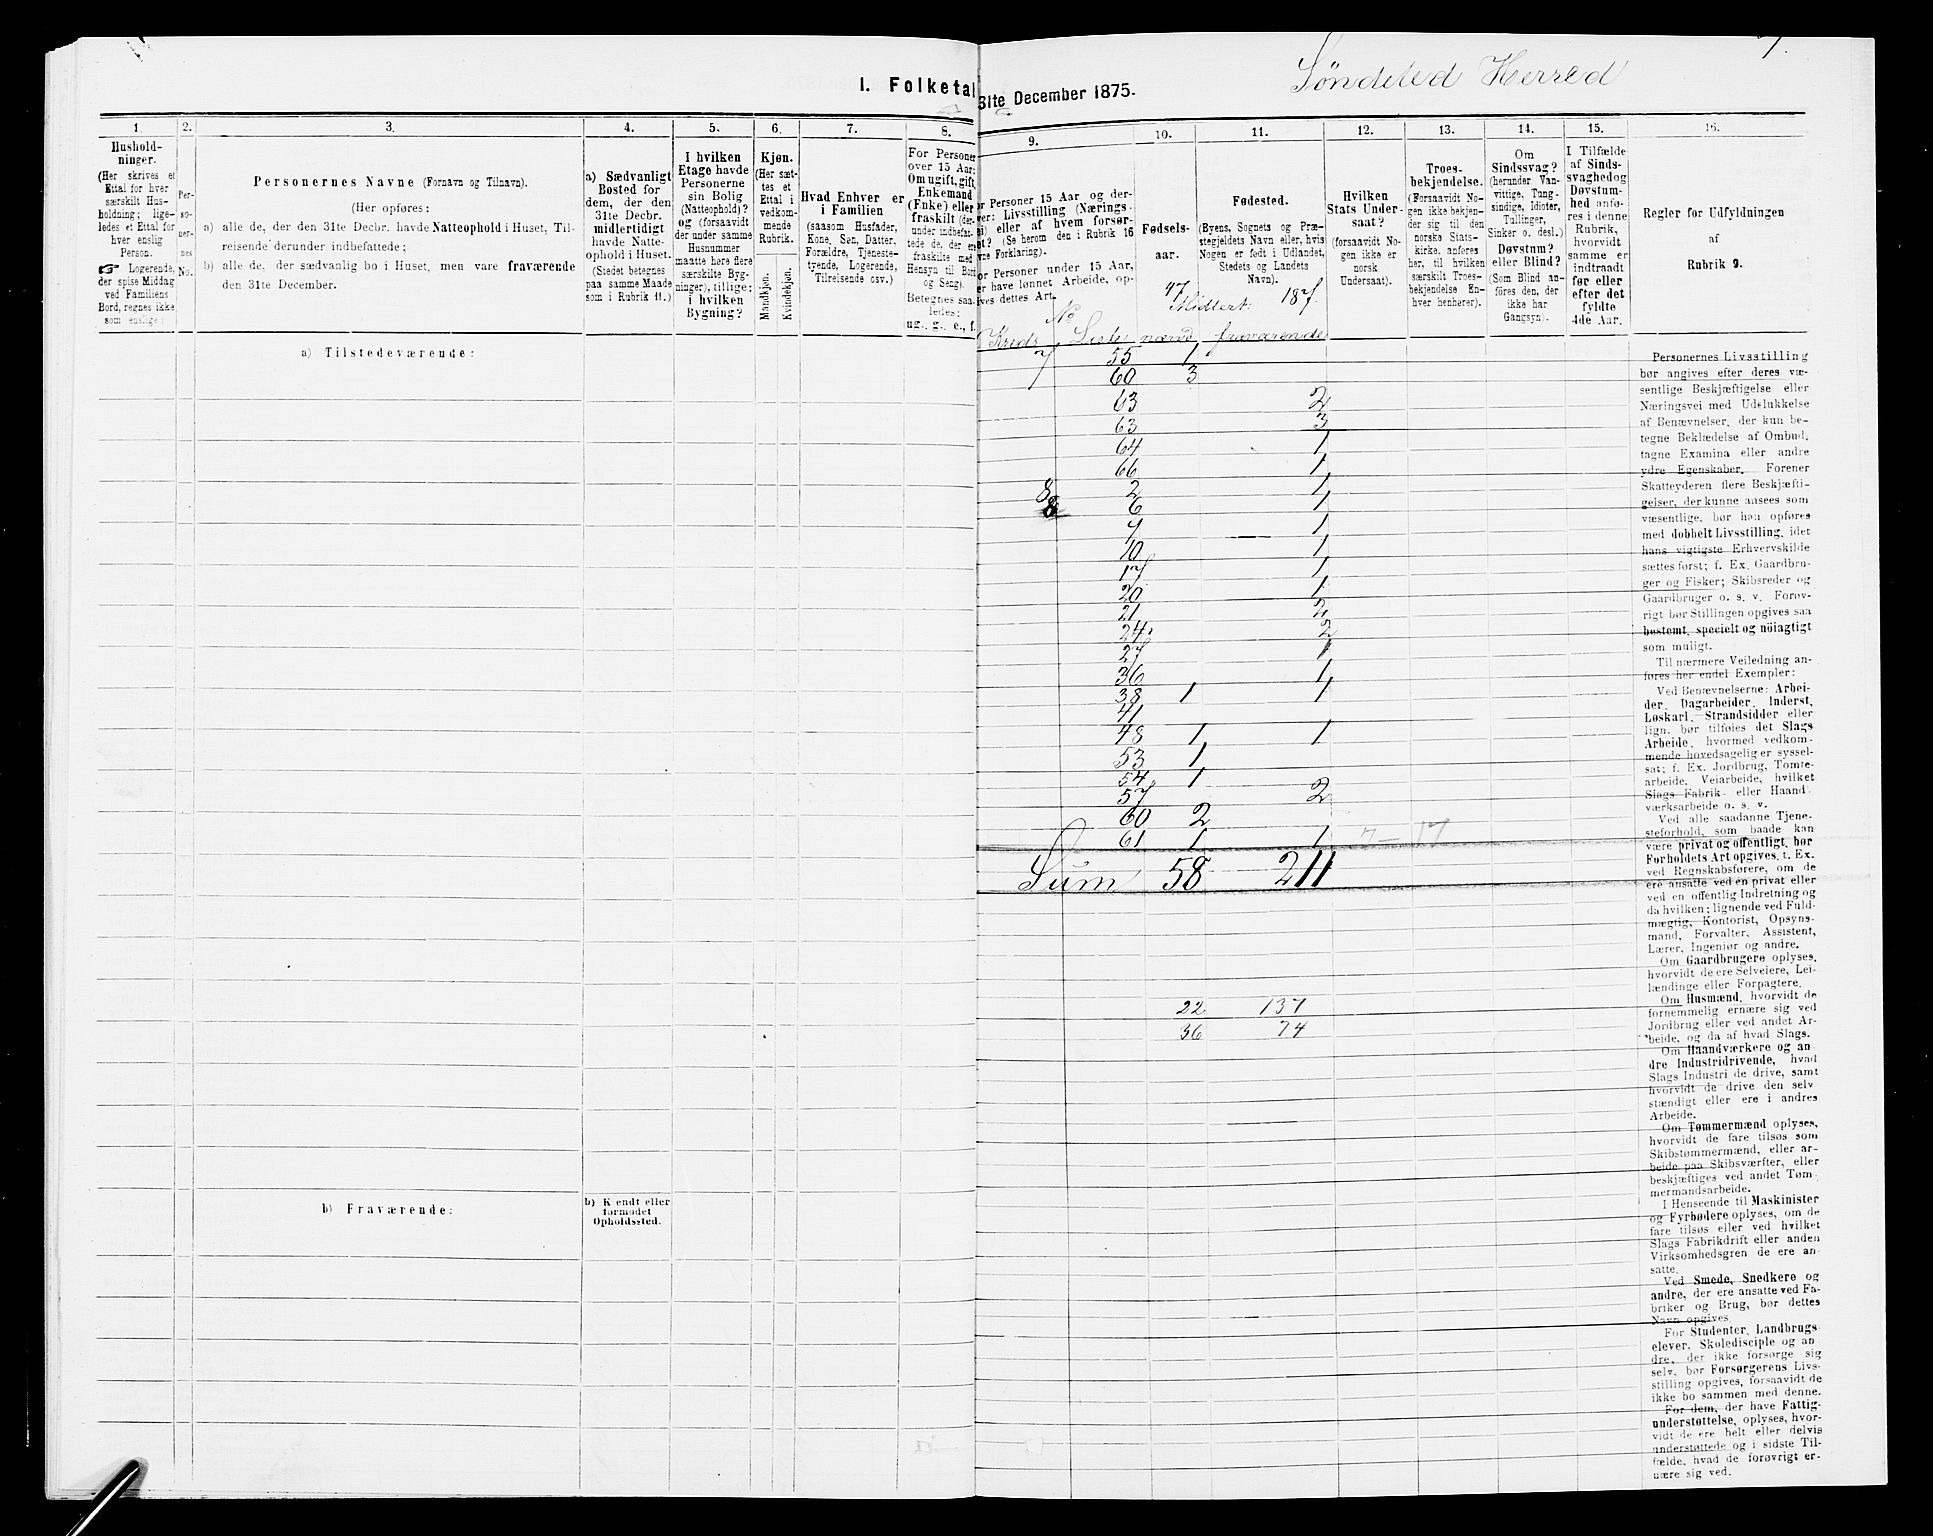 I. Folketal
1.
2.
3.
4.
5.
6.
7.
8.
Hushold-
ninger.
(Her skrives et
Ettal for hver
særskilt Hus-
holdning; lige-
ledes et Ettal for
hver enslig
Person.
Logerende,
der spise Middag
ved Familiens
Bord, regnes ikke
som enslige.)
Per-
so-
ner-
nes
No.
Personernes Navne (Fornavn og Tilnavn).
(Her opføres:
a) alle de, der den 31te Decbr. havde Natteophold i Huset, Til-
reisende derunder indbefattede;
b) alle de, der sædvanlig bo i Huset, men vare fraværende
den 31te December.
a) Sædvanligt
Bosted for
dem, der den
31te Decbr.
midlertidigt
havde Natte-
ophold i Huset.
(Stedet betegnes
paa samme Maade
som i Rubrik 11.)
I hvilken
Etage havde
Personerne
sin Bolig
(Natteophold)?
og (forsaavidt
der under samme
Husnummer
maatte here flere
særskilte Byg-
ninger), tillige:
i hvilken
Bygning?
Kjøn.
(Her sæt-
tes et
Ettal i
vedkom-
mende
Rubrik.
Mandkjøn.
Kvindekjøn.
Hvad Enhver er
i Familien
(saasom Husfader,
Kone, Søn, Datter,
Forældre, Tjeneste-
tyende, Logerende,
Tilreisende osv.)
For Personer
over 15 Aar:
Om ugift, gift,
Enkemand
(Enke) eller
fraskilt (der-
under indbefat-
tede de, der ere
fraskilte med
Hensyn til Bord
og Seng).
Betegnes saa-
ledes:
ug., g., e., f.
a) Tilstedeværende:
b) Fraværende:
b) Kjendt eller
formodet
Opholdssted.
31te December 1875.
Søndeled Herred
9.
10.
11.
12.
13.
14.
15.
16.
For Personer 15 Aar og der-
over: Livsstilling (Nærings-
vei) eller af hvem forsør-
get? (Se herom den i Rubrik 16
givne Forklaring).
For Personer under 15 Aar,
der have lønnet Arbeide, op-
gives dettes Art.
Fødsels-
aar.
Fødested.
(Byens, Sognets og Præ-
stegjeldets Navn eller, hvis
Nogen er født i Udlandet,
Stedets og Landets
Navn).
Hvilken
Stats Under-
saat?
(forsaavidt No-
gen ikke er
norsk
Undersaat).
Troes-
bekjendelse.
(Forsaavidt No-
gen ikke bekjen-
der sig til den
norske Stats-
kirke, anføres
her, til hvilken
særskilt Troes-
bekjendelse En-
hver henhører).
Om
Sindssvag?
(herunder Van-
vittige, Tung-
sindige, Idioter,
Tullinger,
Sinker o. desl.)
Døvstum?
eller Blind?
(Som Blind an-
føres den, der
ikke har
Gangsyn).
I Tilfælde
af Sinds-
svaghed og
Døvstum-
hed anfø-
res i denne
Rubrik,
hvorvidt
samme er
indtraadt
før eller
efter det
fyldte
4de Aar.
Regler for Udfyldningen
af
Rubrik 9.
47 187
Midlert.
No
Kreds Liste nærvd fraværende
7 55 1
60 3
63 2
63 3
64 1
66 1
8 2 1
8 6 1
7 1
10 1
17 1
20 1
21 2
24 2
27 1
36 1
38 1 1
41
48 1 1
53 1
54 1
57 2
60 2
61 1 1 7-17
Sum 58 211
22 137
36 74
Personernes Livsstilling
bør angives efter deres væ-
sentlige Beskjæftigelse eller
Næringsvei med Udelukkelse
af Benævnelser, der kun be-
tegne Beklædelse af Ombud,
tagne Examina eller andre
ydre Egenskaber. Forener
Skatteyderen flere Beskjæfti-
gelser, der kunne ansees som
væsentlige, bør han opføres
med dobbelt Livsstilling, idet
hans vigtigste Erhvervskilde
sættes først; f. Ex. Gaardbru-
ger og Fisker; Skibsreder og
Gaardbruger o. s. v. Forøv-
rigt bør Stillingen opgives saa
bestemt, specielt og nöiagtigt
som muligt.
Til nærmere Veiledning an-
føres her endel Exempler:
Ved Benævnelserne: Arbei-
der, Dagarbeider, Inderst,
Løskarl, Strandsidder eller
lign. bør tilføies det Slags
Arbeide, hvormed vedkom-
mende hovedsagelig er syssel-
sat; f. Ex. Jordbrug, Tomte-
arbeide, Veiarbeide, hvilket
Slags Fabrik- eller Haand-
værksarbeide o. s. v.
Ved alle saadanne Tjene-
steforhold, som baade kan
være privat og offentligt, bør
Forholdets Art opgives, t. Ex.
ved Regnskabsførere, om de
ere ansatte ved en privat eller
ved en offentlig Indretning og
da hvilken; lignende ved Fuld-
mægtig, Kontorist, Opsyns-
mand, Forvalter, Assistent,
Lærer, Ingeniør og andre.
Om Gaardbrugere oplyses,
hvorvidt de ere Selveiere, Lei-
lændinge eller Forpagtere.
Om Husmænd, hvorvidt de
fornemmelig ernære sig ved
Jordbrug eller ved andet Ar-
beide, og da af hvad Slags.
Om Haandværkere og an-
dre Industridrivende, hvad
Slags Industri de drive, samt
hvorvidt de drive den selv-
stændigt eller ere i andres
Arbeide.
Om Tømmermænd oplyses,
hvorvidt de fare tilsøs som
Skibstømmermænd, eller ar-
beide paa Skibsværfter, eller
beskjæftiges ved andet Tøm-
mermandsarbeide.
I Henseende til Maskinister
og Fyrbødere oplyses, om de
fare tilsøs eller ved hvilket
Slags Fabrikdrift eller anden
Virksomhedsgren de ere an-
satte.
Ved Smede, Snedkere og
andre, der ere ansatte ved Fa-
briker og Brug, bør dettes
Navn opgives.
For Studenter, Landbrugs-
elever, Skoledisciple og an-
dre, der ikke forsørge sig
selv, bør Forsørgerens Livs-
stilling opgives, forsaavidt de
ikke bo sammen med denne.
For dem, der have Fattig-
understøttelse, oplyses, hvor-
vidt de ere helt eller delvis
understøttede og i sidste Til-
fælde, hvad de forøvrigt er-
nære sig ved.